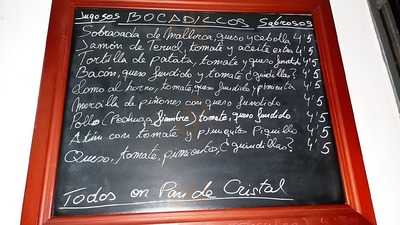 Jugosos BOCADILLOS Sabrosos
Sobrasada de Mallorca, queso y cebolla 4'5
Jamón de Teruel, tomate y aceite extra 4'5
Tortilla de patata, tomate y queso fundido 4'5
Bacón, queso fundido y tomate ¿guindillas? 4'5
Lomo al horno, tomate, queso fundido y pimienta 4'5
Morcilla de piñones con queso fundido 4'5
Pollo (Pechuga fiambre) tomate, queso fundido 4'5
Atún con tomate y pimiento Piquillo 4'5
Queso, tomate, pimientos, ¿guindillas? 4'5
Todos en Pan de Cristal